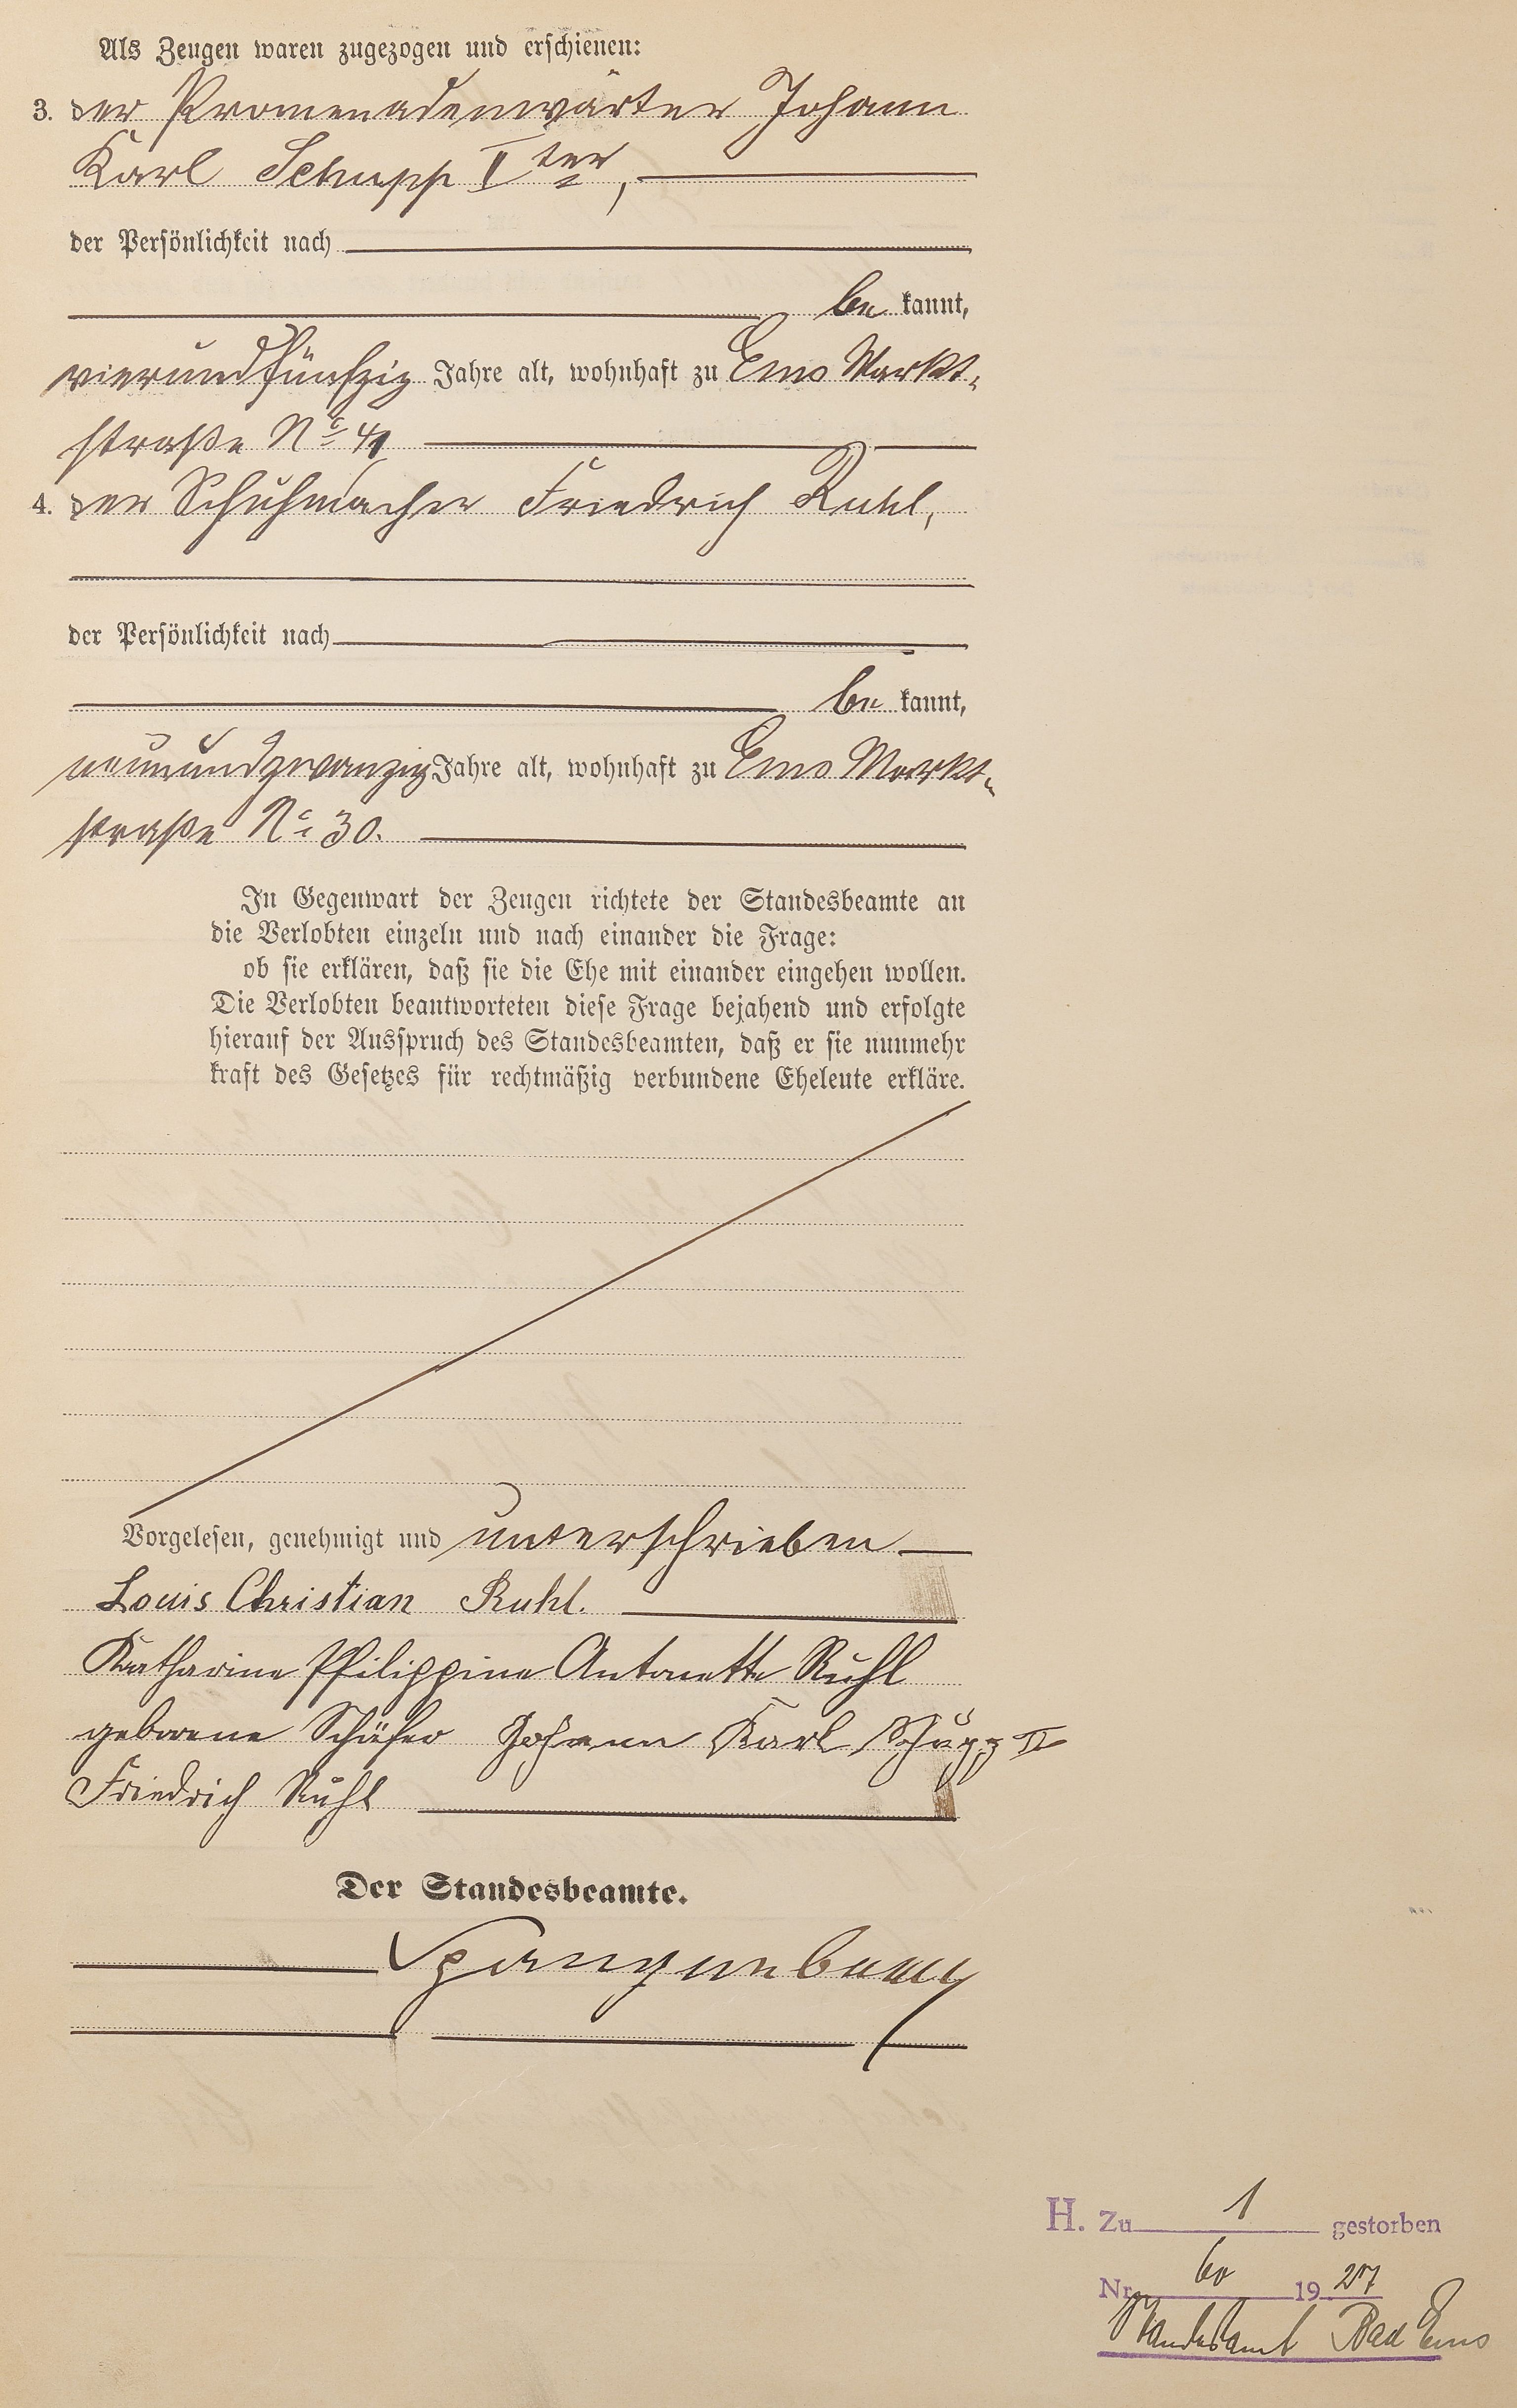 Als Zeugen waren zugezogen und erschienen:
3. der Promenadenwärter Johann
Karl Schupp II ter,
der Persönlichkeit nach
be kannt,
vierundfünfzig Jahre alt, wohnhaft zu Ems Markt-
straße No 41
4. der Schuhmacher Friedrich Ruhl,
der Persönlichkeit nach
be kannt,
neunundzwanzig Jahre alt, wohnhaft zu Ems Markt-
straße No 30.
In Gegenwart der Zeugen richtete der Standesbeamte an
die Verlobten einzeln und nach einander die Frage:
ob sie erklären, daß sie die Ehe mit einander eingehen wollen.
Die Verlobten beantworteten diese Frage bejahend und erfolgte
hierauf der Ausspruch des Standesbeamten, daß er sie nunmehr
kraft des Gesetzes für rechtmäßig verbundene Eheleute erkläre.
Vorgelesen, genehmigt und unterschrieben
Louis Christian Ruhl.
Katharine Philippine Antonette Ruhl
geborene Schäfer Johann Karl Schupp II
Friedrich Ruhl
Der Standesbeamte.
Spangenberg
H. Zu 1 gestorben
Nr. 60 1927
Standesamt Bad Ems